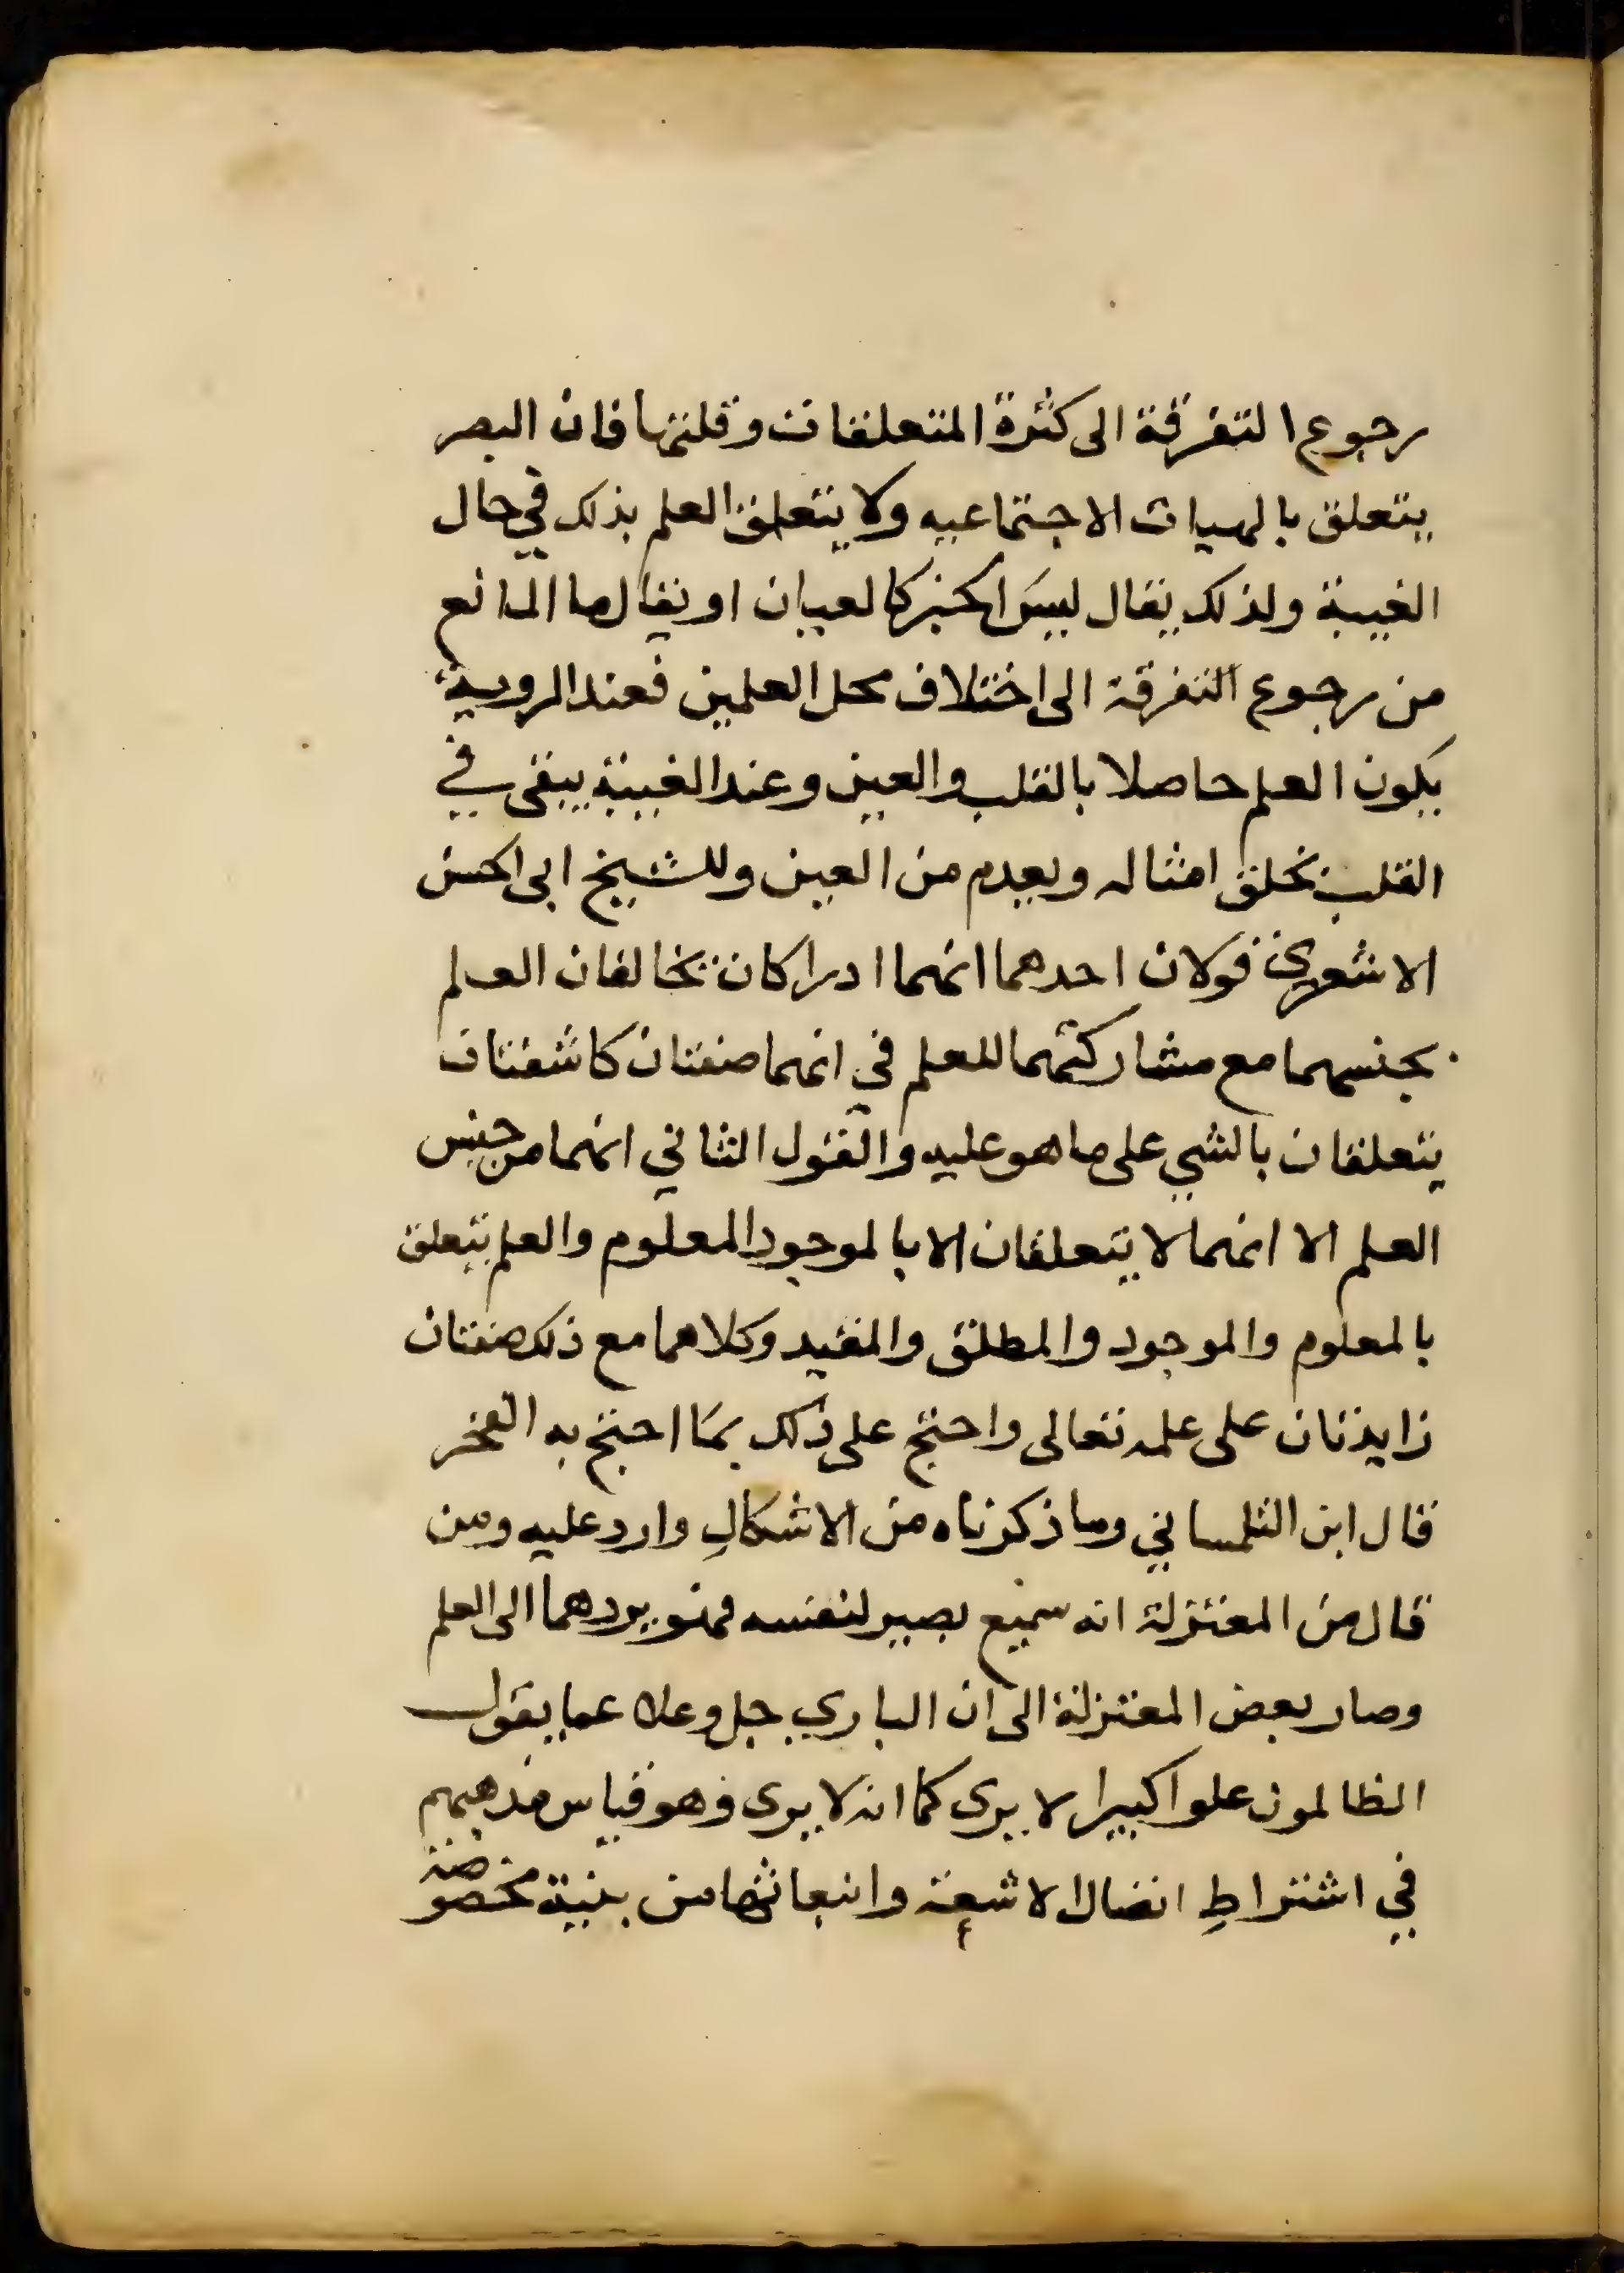 رجوع التفرقة الى كثرة المتعلقات وقلتها فان البصر
يتعلق بالهيات الاجتماعيه ولا يتعلق العلم بذلك في حال
الغيبة ولذلك يقال ليس الخبر كالعيان او يقال ما المانع
من رجوع التفرقة الى اختلاف محل العلمين فعند الروية
يكون العلم حاصلا بالقلب والعين وعند الغيبة يبقى في
القلب بخلق امثاله ويعدم من العين وللشيخ ابي الحسن
الاشعري قولان احدهما انهما ادراكان يخالفان العلم
بجنسهما مع مشاركتهما للعلم في انهما صفتان كاشفتان
يتعلقان بالشي على ما هو عليه والقول الثاني انهما من جنس
العلم الا انهما لا يتعلقان الا بالموجود المعلوم والعلم يتعلق
بالمعلوم والموجود والمطلق والمقيد وكلاهما مع ذلك صفتان
زايدتان على علمه تعالى واحتج على ذلك بما احتج به الفخر
قال ابن التلمساني وما ذكرناه من الاشكالِ وارد عليه ومن
قال من المعتزلة انه سميع بصير لنفسه فهو يردهما الى العلم
وصار بعض المعتزلة الى ان الباري جل وعلا عما يقول
الظالمون علوا كبيرا لا يرى كما انه لا يرى وهو قياس مذهبهم
في اشتراطِ اتصال الاشعة وانبعاثها من بنية مخصوصة